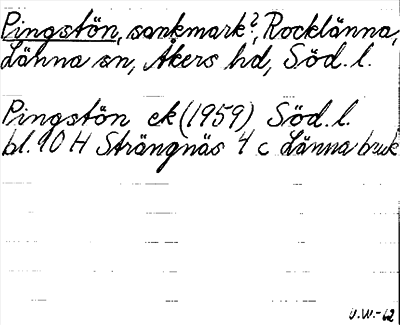 Pingstön, sankmark?, Rocklänna,
Länna sn, Åkers hd, Söd. l.
Pingstön ek (1959) Söd. l.
bl. 10 H Strängnäs 4 c Länna bruk
U.W.-62